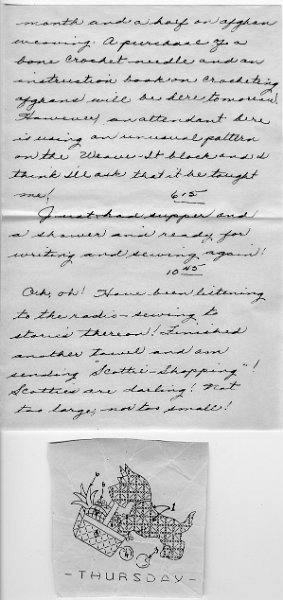 month and a half on afghan
weaving. A purchase of a
bone crochet needle and an
instruction book on crocheting
afghans will be here tomorrow!
However, an attendant here
is using an unusual pattern
on the Weave-It block and I
think I'll ask that it be taught
me!
6 15
Just had supper and
a shower and ready for
writing and sewing again!
10 45
Oh, oh! Have been listening
to the radio - sewing to
stories thereon! Finished
another towel and am
sending Scottie-"Shopping"!
Scotties are darling! Not
too large; nor too small!
- THURSDAY -